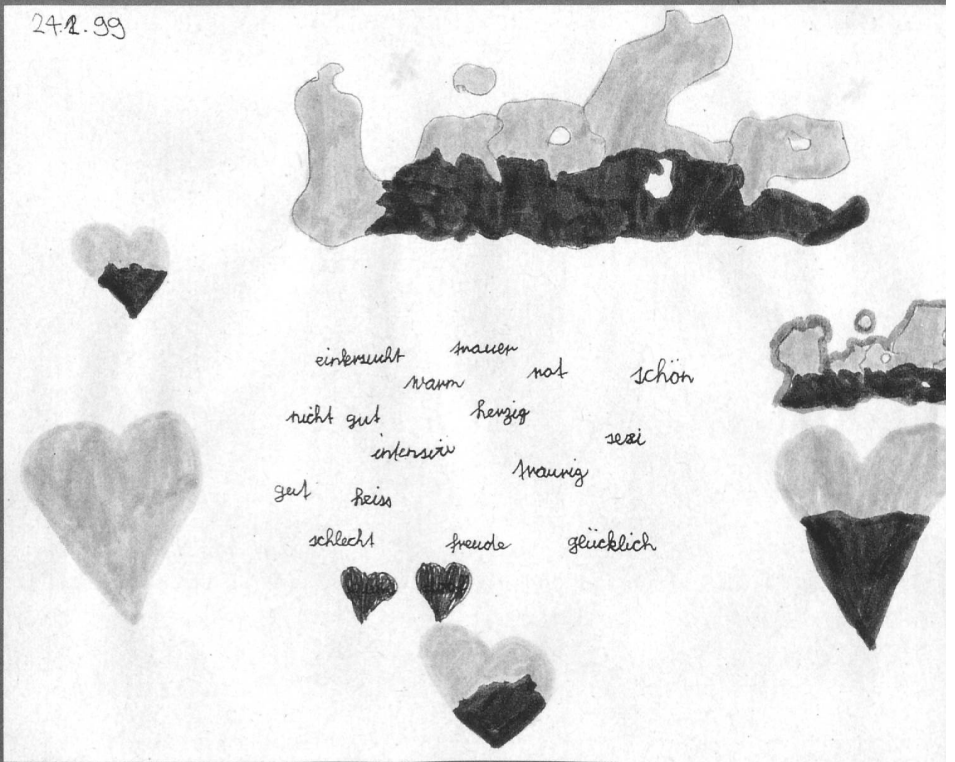 24.1.99
Liebe
trauer
eifersucht
warm rot schön
nicht gut herzig
sexi
intensiv
traurig
gut heiss
schlecht freude glücklich